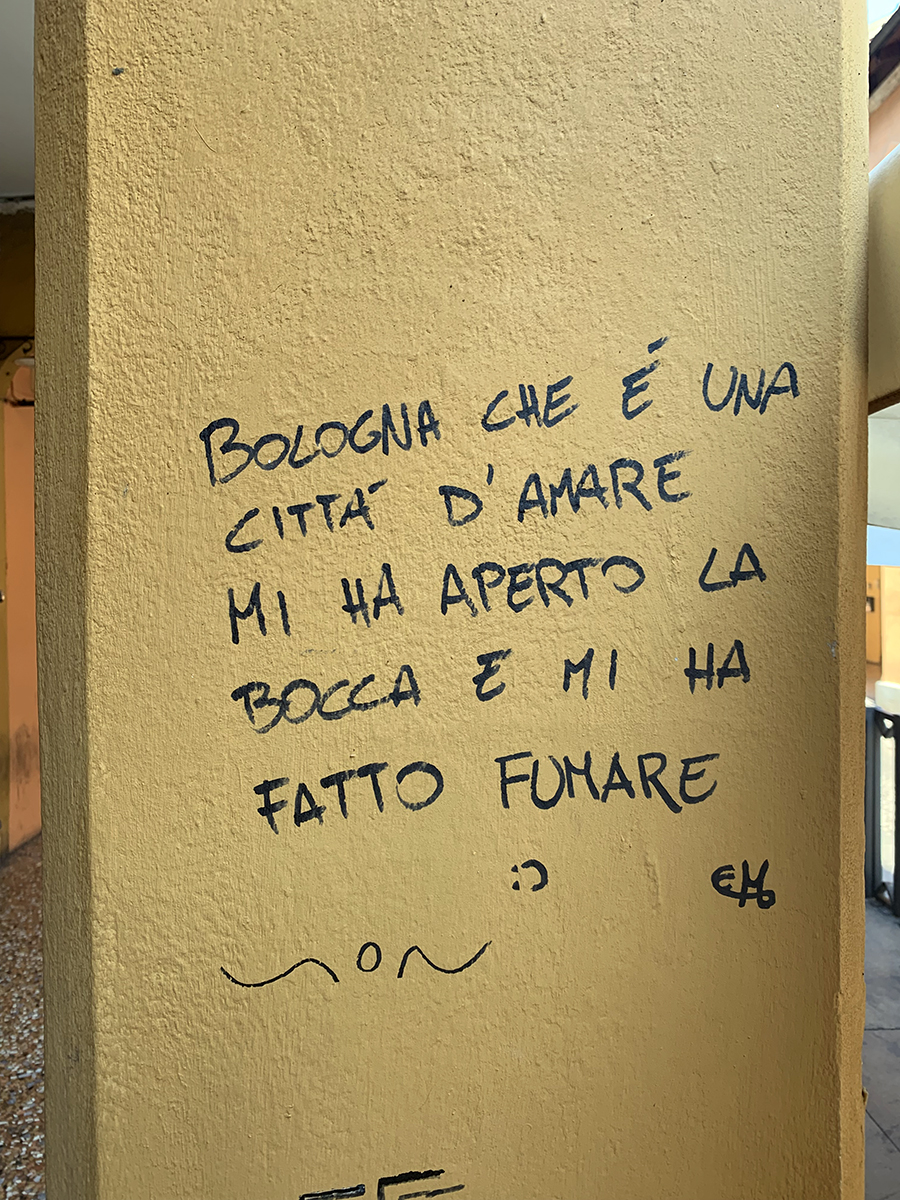 BOLOGNA CHE É UNA
CITTÀ D'AMARE
MI HA APERTO LA
BOCCA E MI HA
FATTO FUMARE
:)